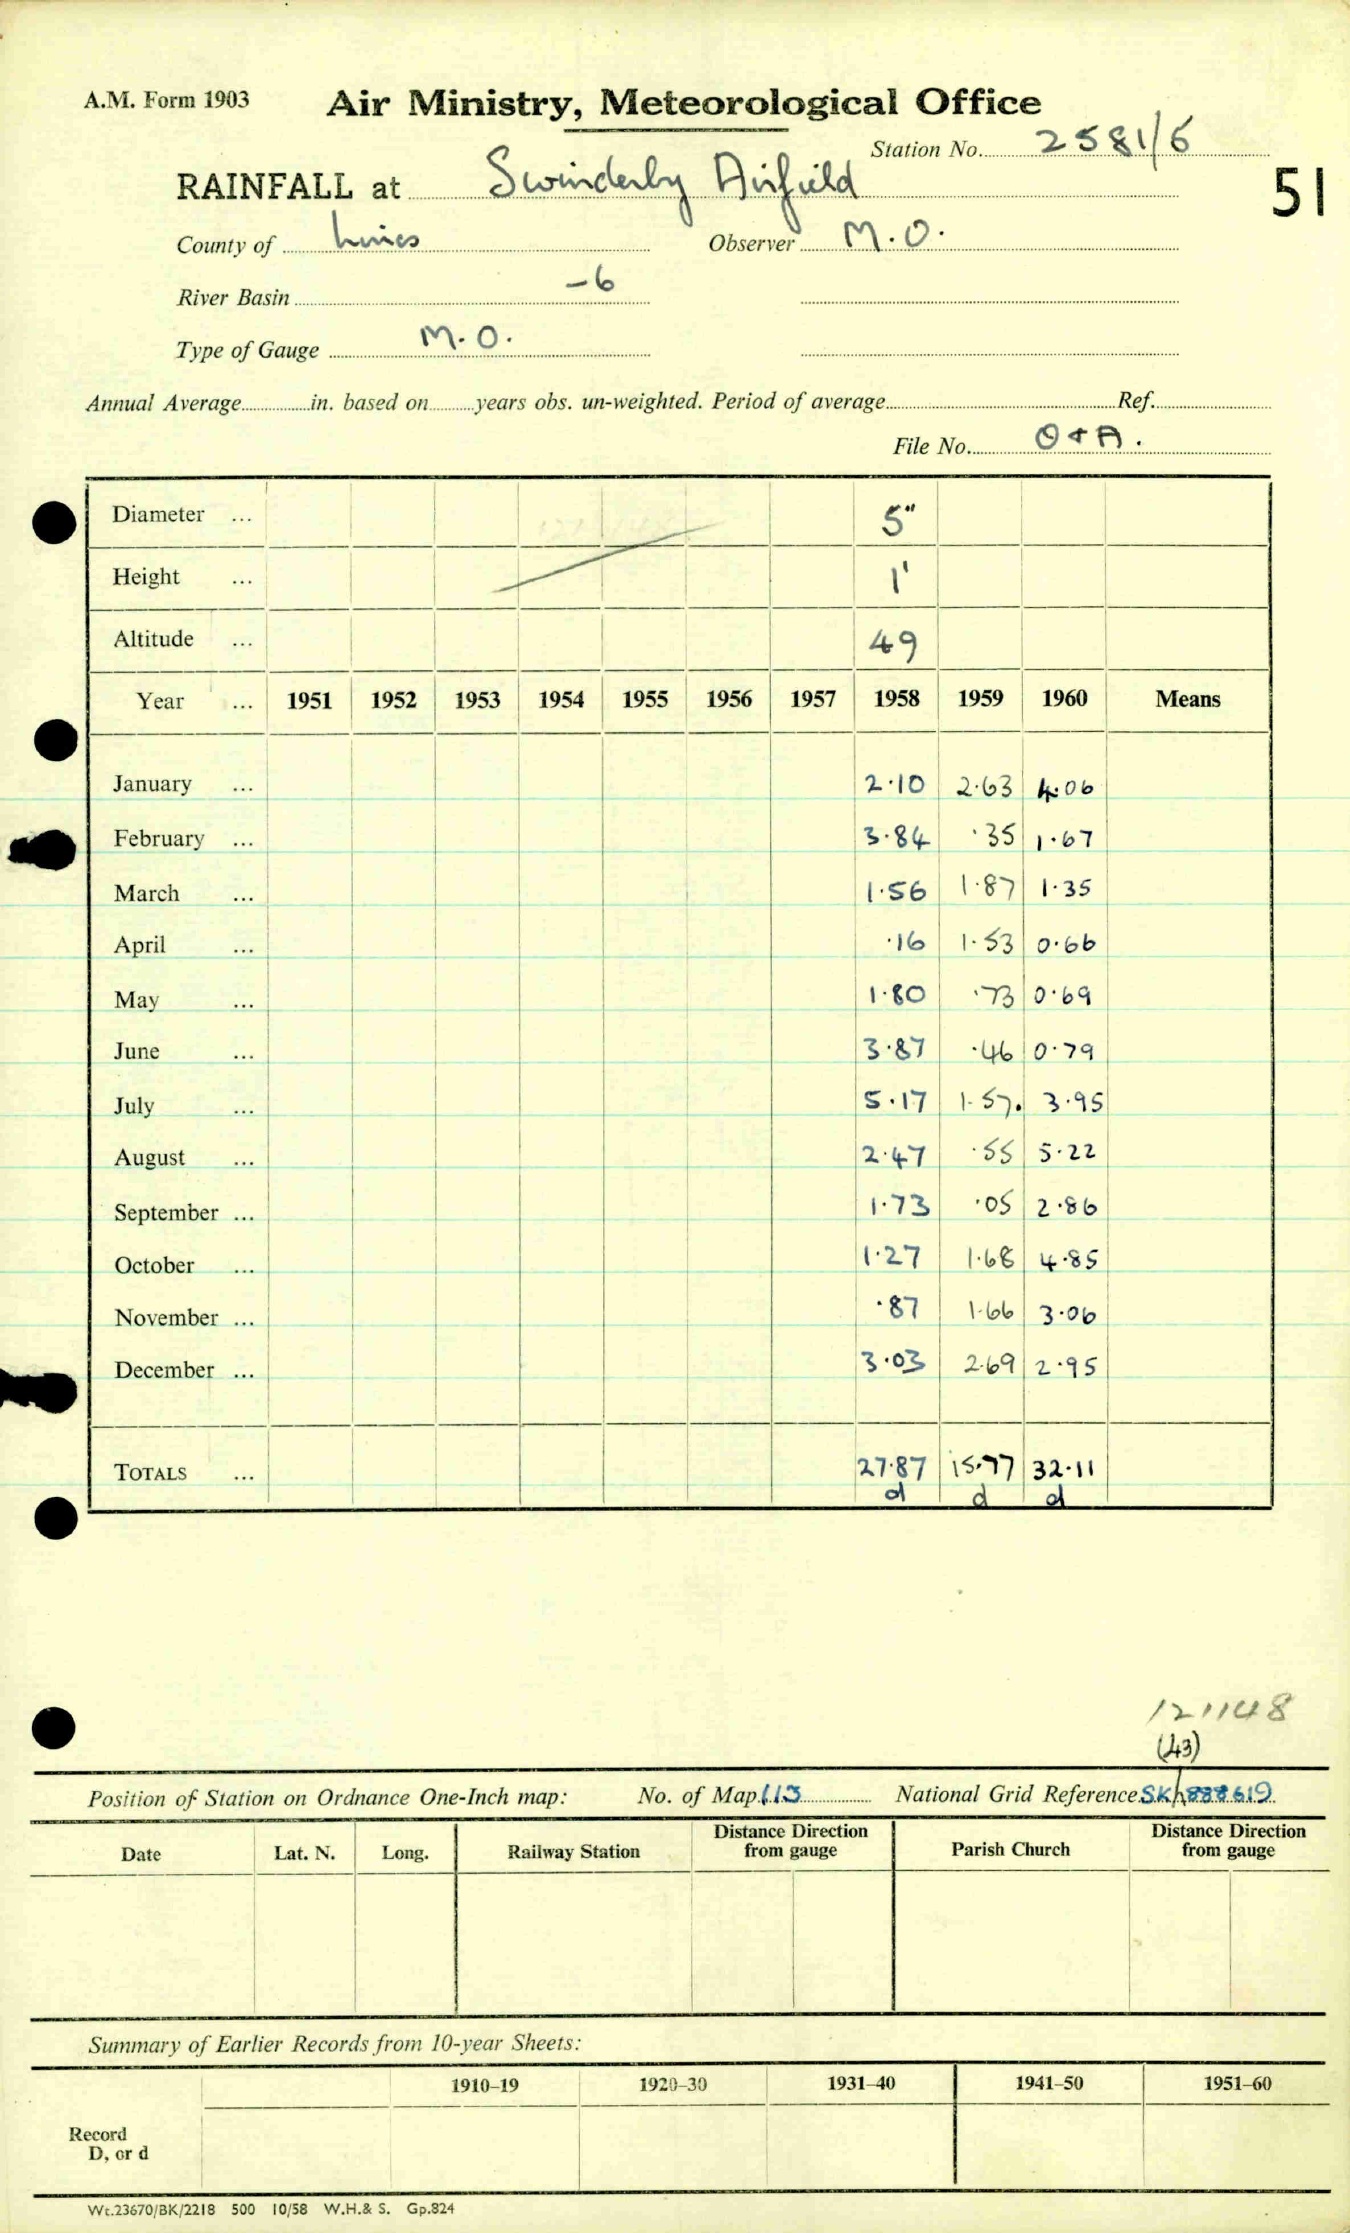 A.M. Form 1903
Air Ministry, Meteorological Office
Station No. 2581/6
51
RAINFALL at Swinderby Airfield
County of Lincs Observer M.O.
River Basin -6
Type of Gauge M.O.
Annual Average in. based on years obs. un-weighted. Period of average Ref.
File No. O+A.
Diameter ... 5"
Height ... 1'
Altitude ... 49
Year ... 1951 1952 1953 1954 1955 1956 1957 1958 1959 1960 Means
January ... 2.10 2.63 4.06
February ... 3.84 .35 1.67
March ... 1.56 1.87 1.35
April ... .16 1.53 0.66
May ... 1.80 .73 0.69
June ... 3.87 .46 0.79
July ... 5.17 1.57. 3.95
August ... 2.47 .55 5.22
September ... 1.73 .05 2.86
October ... 1.27 1.68 4.85
November ... .87 1.66 3.06
December ... 3.03 2.69 2.95
TOTALS ... 27.87 15.77 32.11
d d d
121148
(43)
Position of Station on Ordnance One-Inch map: No. of Map 113 National Grid Reference SK/888619
Date Lat. N. Long. Railway Station Distance Direction from gauge Parish Church Distance Direction from gauge
Summary of Earlier Records from 10-year Sheets:
1910–19 1920–30 1931–40 1941–50 1951–60
Record
D, or d
Wt.23670/BK/2218 500 10/58 W.H.& S. Gp.824